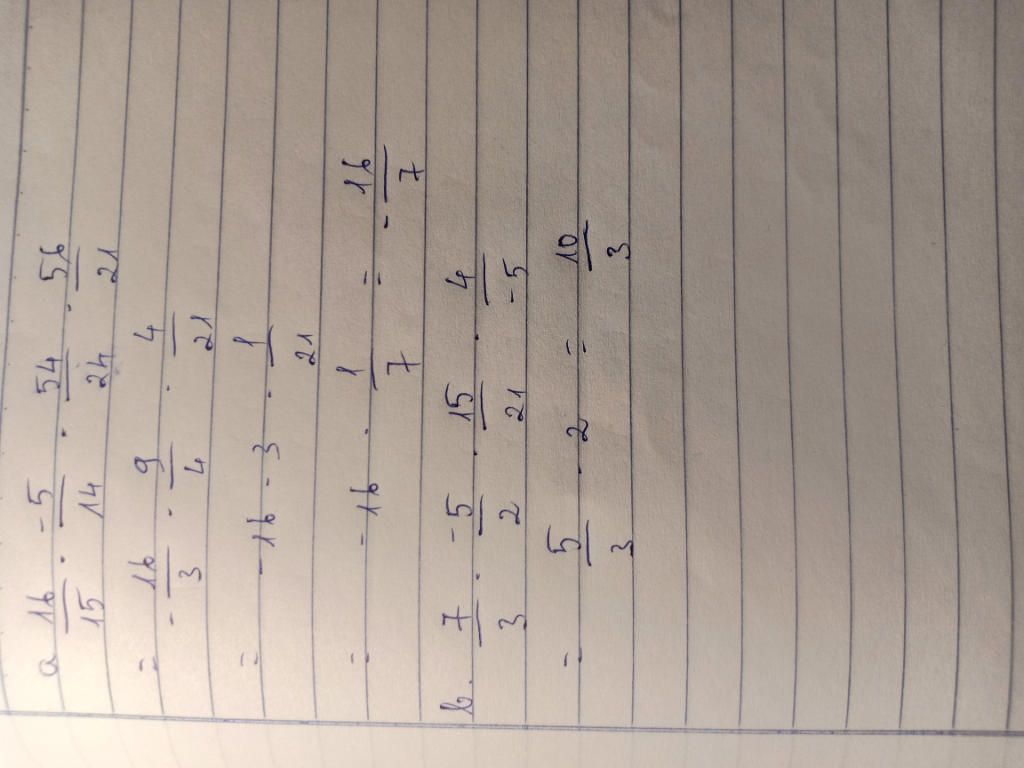 a 16/15 . -5/14 . 54/24 . 56/21
= - 16/3 . 9/4 . 4/21
= -16 . 3 . 1/21
= -16 . 1/7 = - 16/7
b. 7/3 . -5/2 . 15/21 . 4/-5
= 5/3 . 2 = 10/3